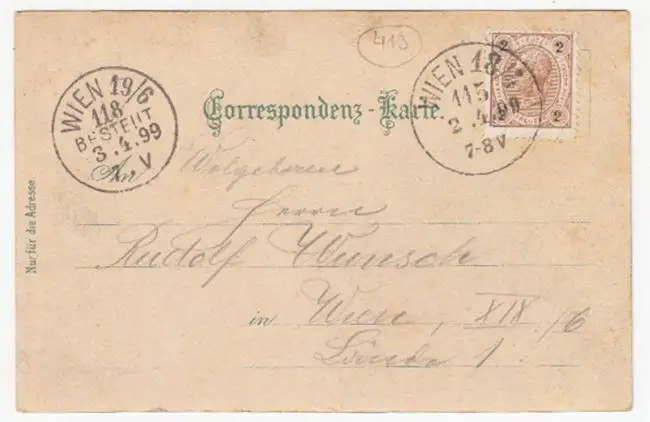 413
WIEN 19/6
118
BESTELLT
3.4.99
V
Correspondenz-Karte.
WIEN 18
115
3.4.99
7-8V
2 2
2
An Wolgeboren
Herrn
Rudolf Wunsch
in Wien, XIX/6
1
Nur für die Adresse